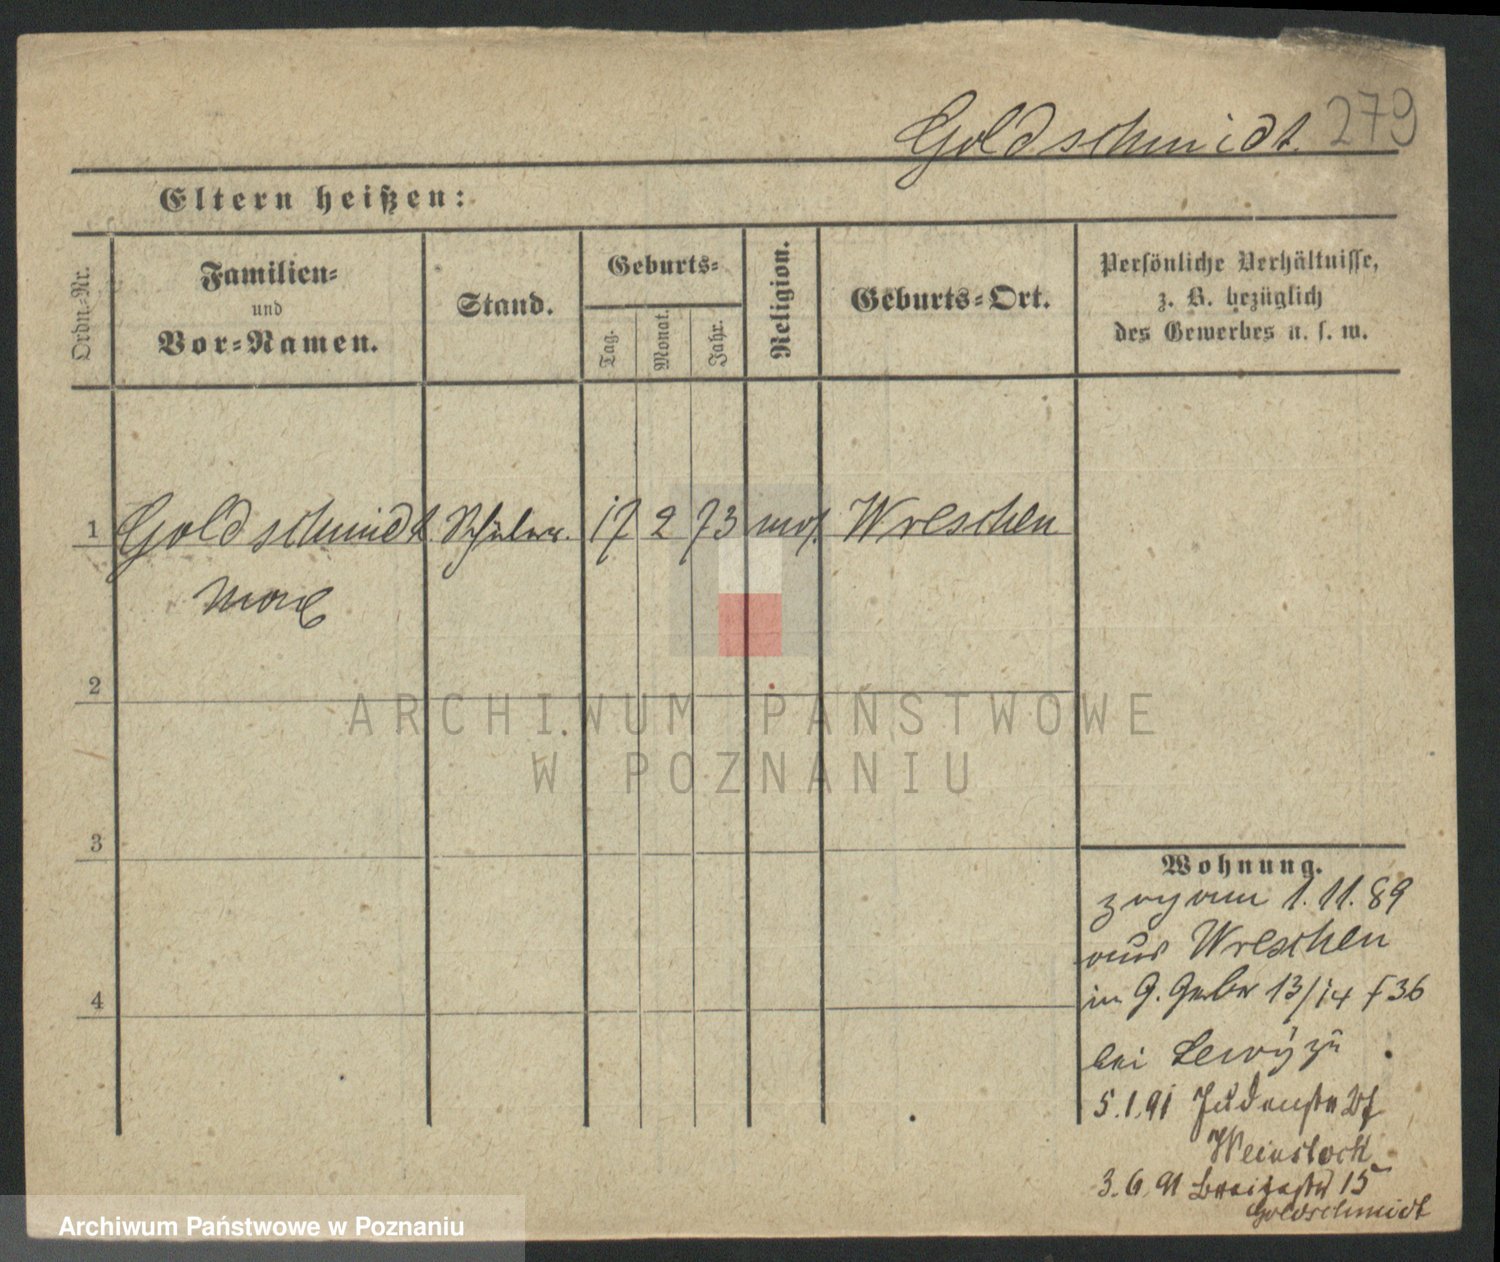 Goldschmidt. 279
Eltern heißen:
Ordn.-Nr.
Familien-
und
Vor-Namen.
Stand.
Geburts-
Tag.
Monat.
Jahr.
Religion.
Geburts-Ort.
Persönliche Verhältnisse,
z. B. bezüglich
des Gewerbes u. s. w.
1 Goldschmidt Schüler. 17 2 73 mos. Wreschen
Max
2
ARCHIWUM PAŃSTWOWE
W POZNANIU
3
4
Wohnung.
zog am 1.11.89
aus Wreschen
in G. Gerber 13/14
bei Lewy zu
5.1.91 Judenstr
Weinstock
3.6.91 Breitestr 15
Goldschmidt
Archiwum Państwowe w Poznaniu